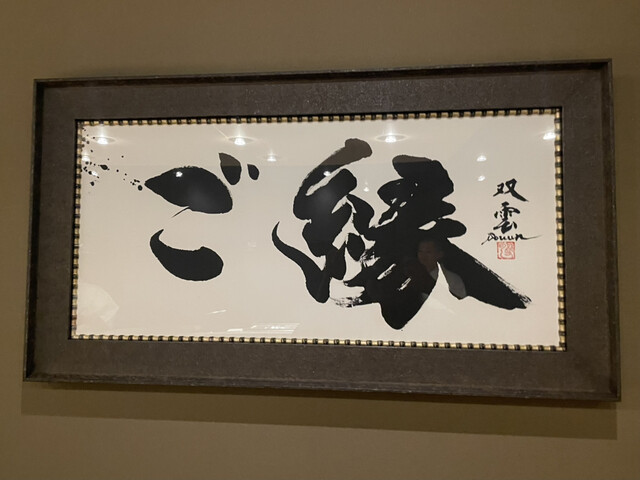 ご縁
双雲
Souun